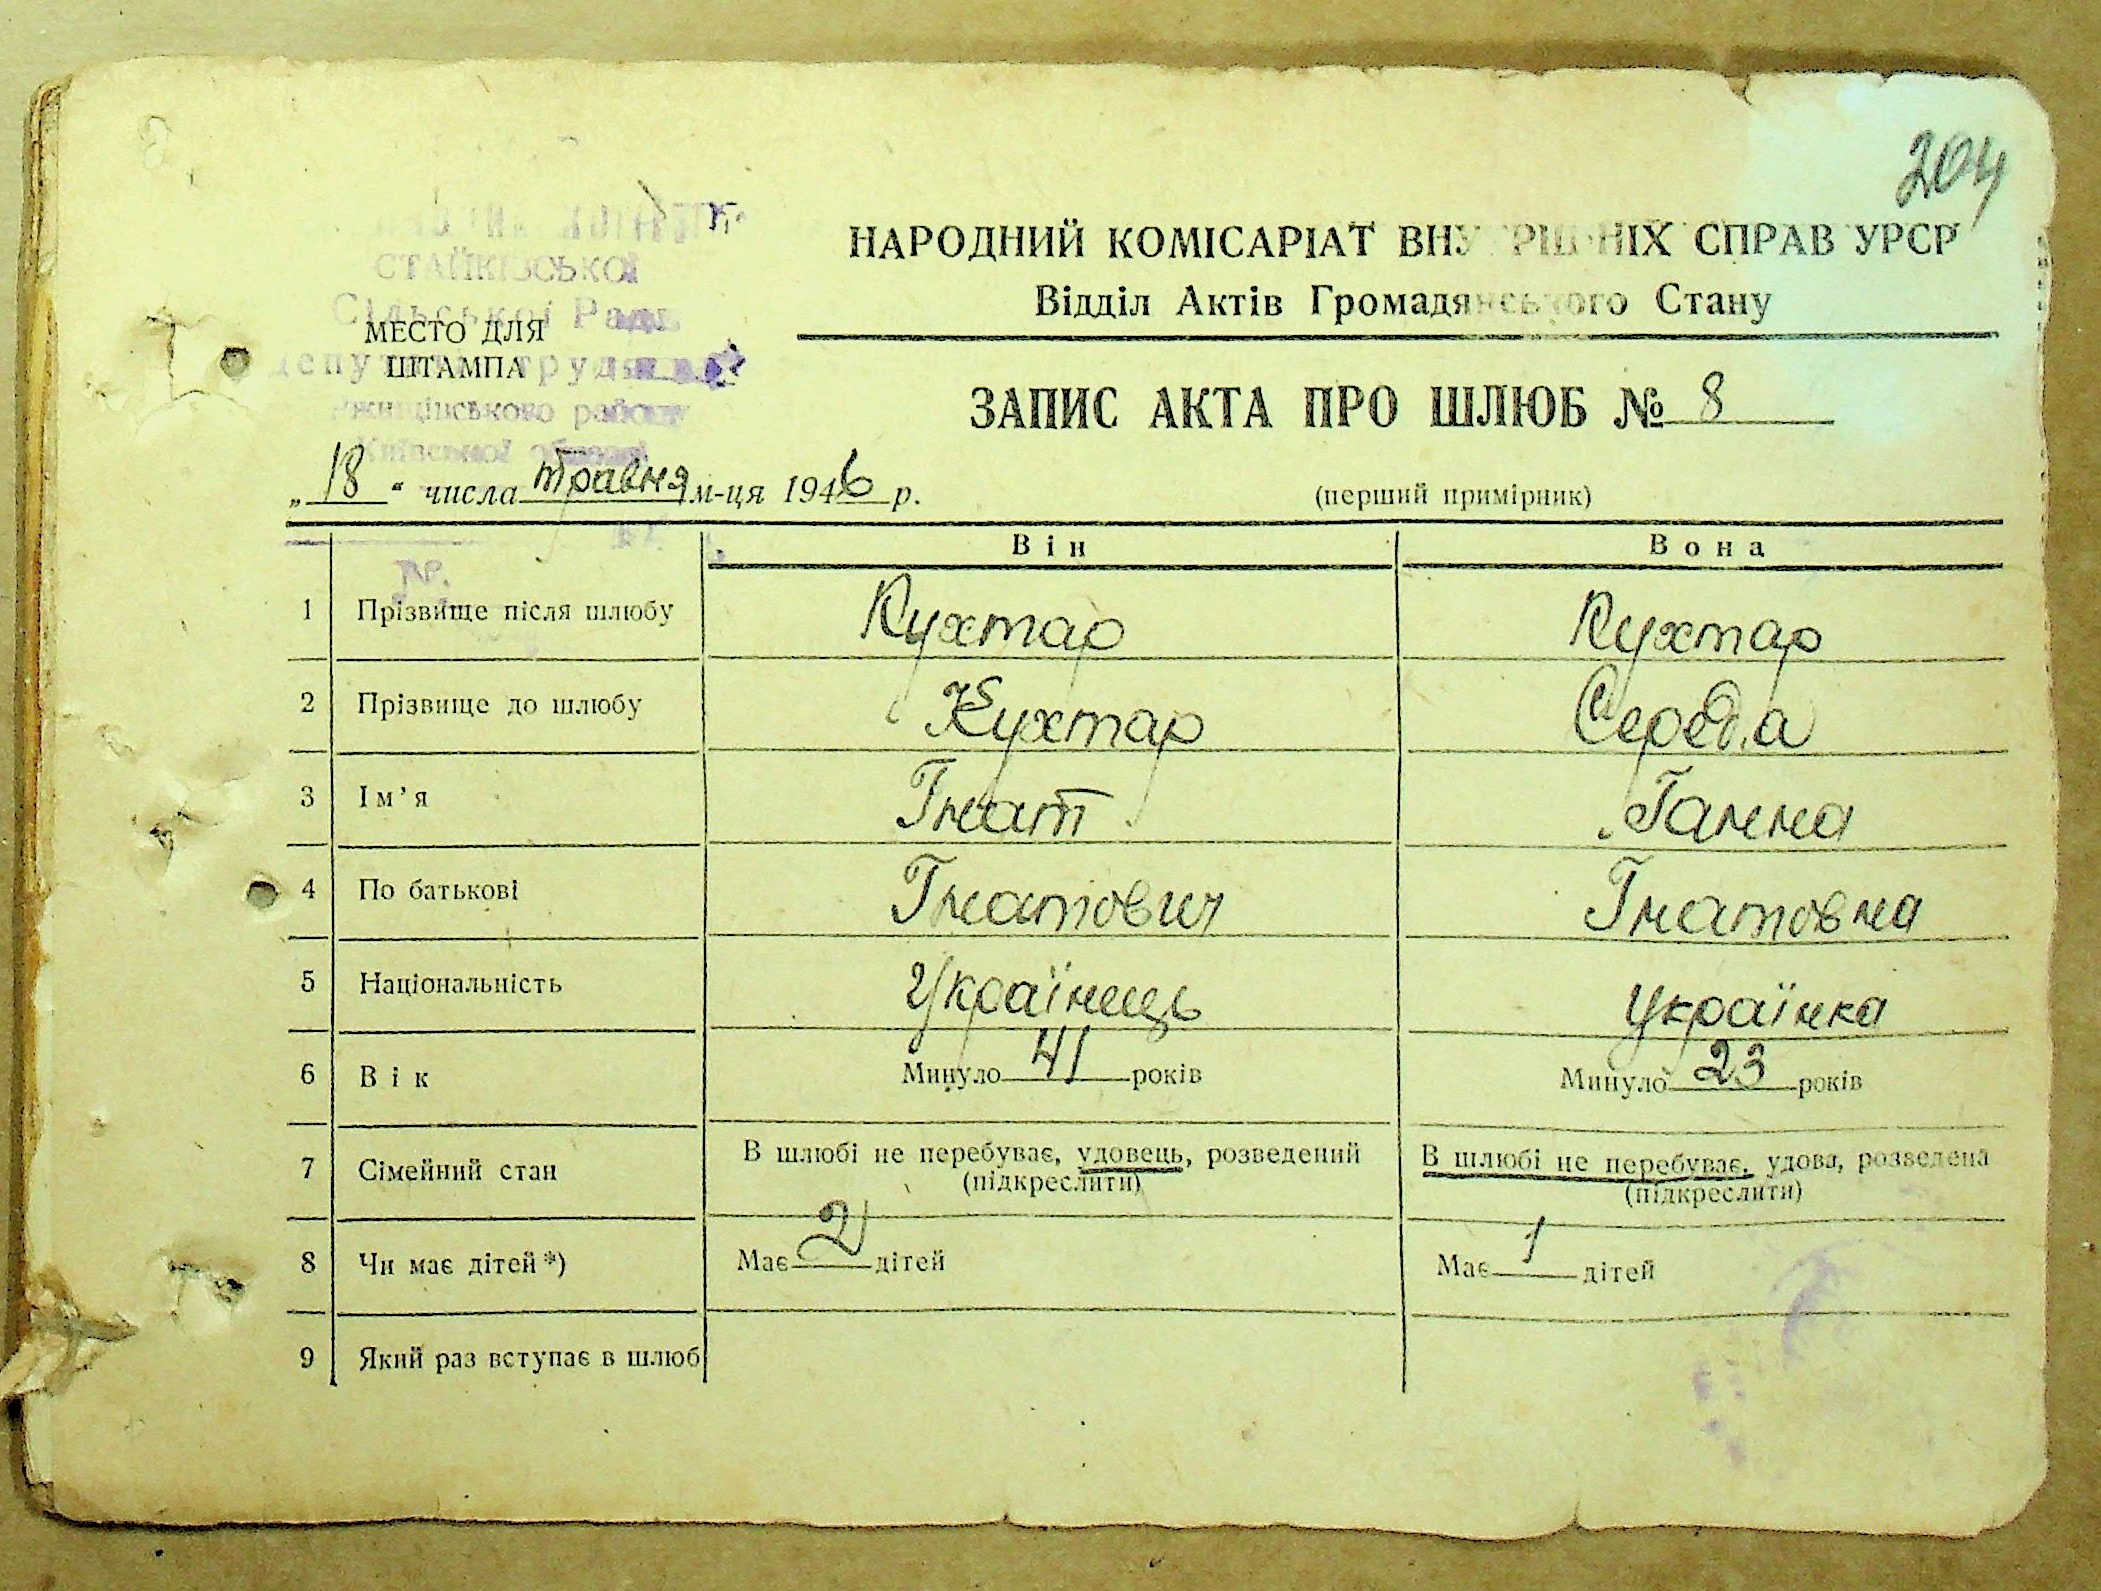 204
НАРОДНИЙ КОМІСАРІАТ ВНУТРІШНІХ СПРАВ УРСР
Відділ Актів Громадянського Стану
СТАЙКІВСЬКОЇ
Сільської Ради
МЕСТО ДЛЯ
ШТАМПА
депутатів трудящих
Ржищівського району
Київської області
ЗАПИС АКТА ПРО ШЛЮБ № 8
„18“ числа травня м-ця 1946 р.
(перший примірник)
Він Вона
№
1 Прізвище після шлюбу Кухтар Кухтар
2 Прізвище до шлюбу Кухтар Середа
3 Ім’я Гнат Ганна
4 По батькові Гнатович Гнатовна
5 Національність Українець Українка
6 Вік Минуло 41 років Минуло 23 років
7 Сімейний стан В шлюбі не перебуває, удовець, розведений В шлюбі не перебуває, удова, розведена
(підкреслити) (підкреслити)
8 Чи має дітей *) Має 2 дітей Має 1 дітей
9 Який раз вступає в шлюб